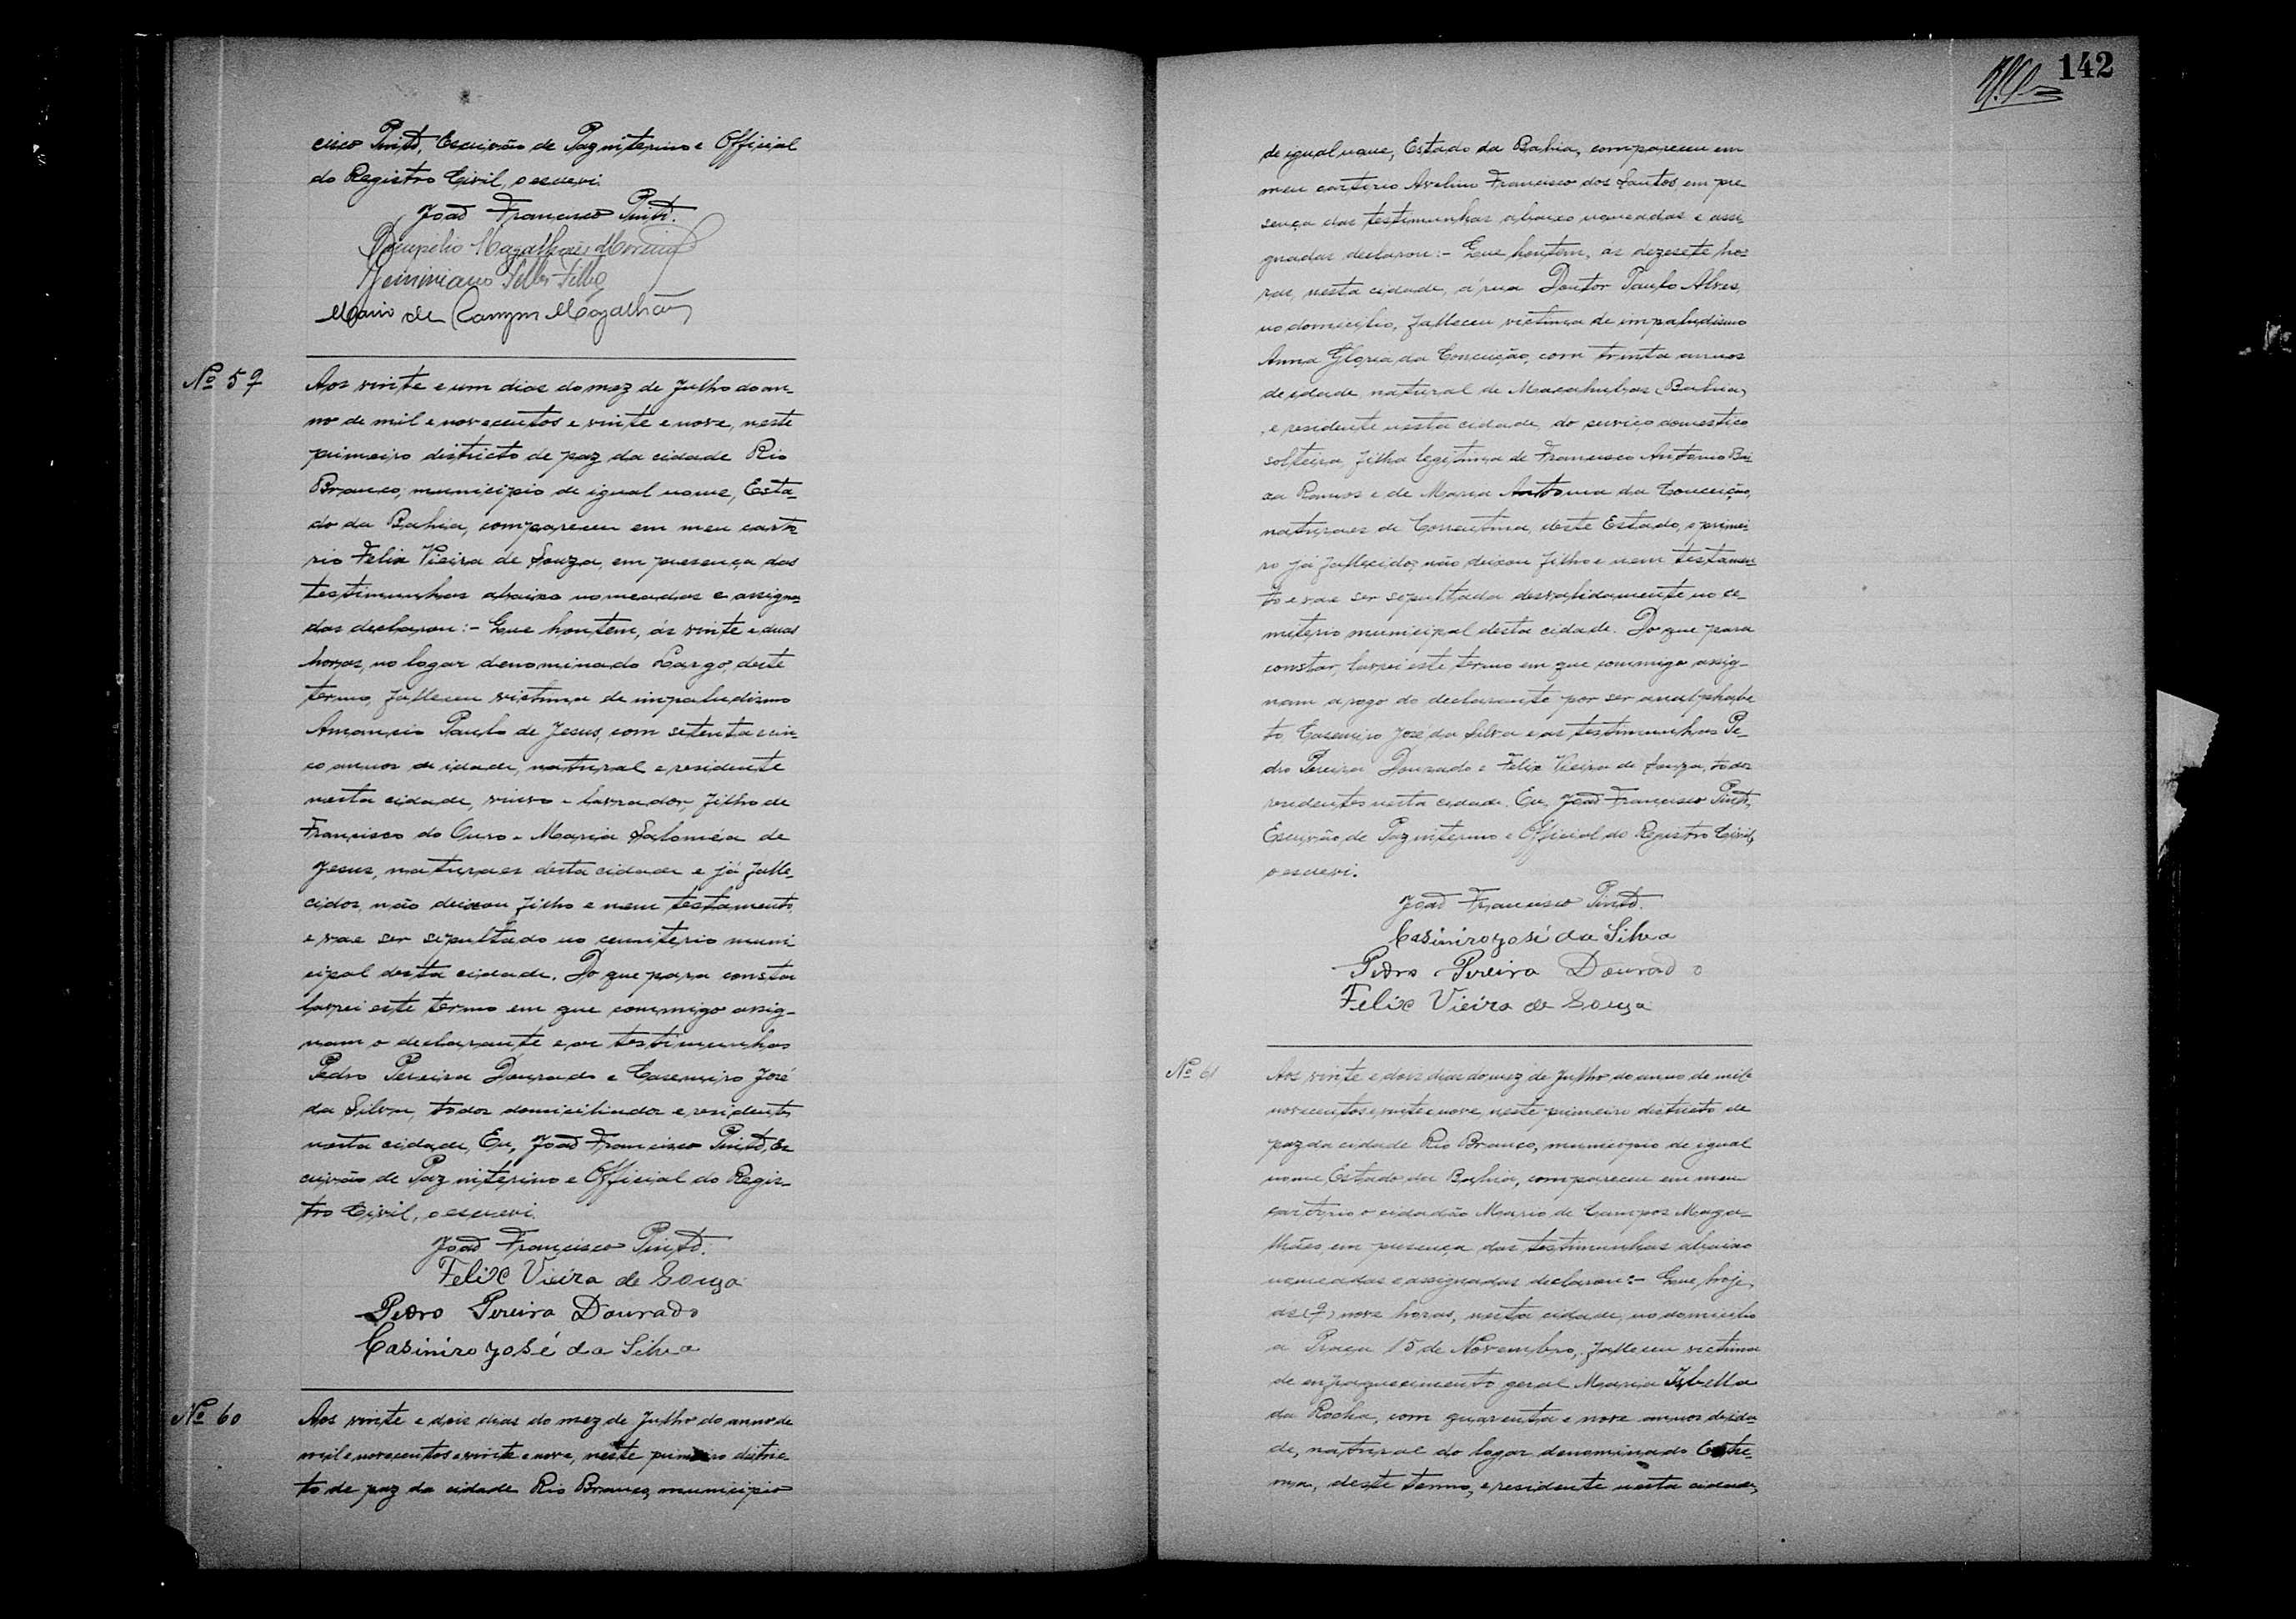 cisco Pinto, Escrivão de Paz interino e Official
do Registro Civil, o escrevi.
João Francisco Pinto.
Pompilio Magalhães Moreira
Geminiano Telles Filho
Mario de Campos Magalhães
Nº 59
Aos vinte e um dias do mez de Julho do an-
no de mil e novecentos e vinte e nove, neste
primeiro districto de paz da cidade Rio
Branco, municipio de igual nome, Esta-
do da Bahia, compareceu em meu carto-
rio Felix Vieira de Souza, em presença das
testimunhas abaixo nomeadas e assigna-
das declarou:- Que hontem, ás vinte e duas
horas, no logar denominado Largo, deste
termo, falleceu victima de impaludismo
Amancio Paulo de Jesus, com setenta e cin-
co annos de idade, natural e residente
nesta cidade, viuvo e lavrador, filho de
Francisco do Ouro e Maria Saloméa de
Jesus, naturaes desta cidade e já falle-
cidos, não deixou filho e nem testamento,
e vae ser sepultado no cemiterio muni-
cipal desta cidade. Do que para constar
lavrei este termo em que commigo assig-
nam o declarante e as testimunhas
Pedro Pereira Dourado e Casemiro José
da Silva, todos domiciliados e residentes
nesta cidade, Eu, João Francisco Pinto, Es-
crivão de Paz interino e Official do Regis-
tro Civil, o escrevi.
João Francisco Pinto.
Felix Vieira de Souza
Pedro Pereira Dourado
Casimiro José da Silva
Nº 60
Aos vinte e dois dias do mez de Julho do anno de
mil e novecentos e vinte e nove, neste primeiro distric-
to de paz da cidade Rio Branco, municipio
142
de igual nome, Estado da Bahia, compareceu em
meu cartorio Avelino Francisco dos Santos, em pre-
sença das testimunhas abaixo nomeadas e assi-
gnadas declarou:- Que hontem, as dezesete ho-
ras, nesta cidade, á rua Doutor Paulo Alves,
no domicilio, falleceu victima de impaludismo
Anna Gloria da Conceição, com trinta annos
de idade, natural de Macahubas (Bahia)
e residente nesta cidade, do serviço domestico
solteira, filha legitima de Francisco Antonio Bai-
xa Ramos e de Maria Antonia da Conceição,
naturaes de Correntina, deste Estado, o primei-
ro já fallecido, não deixou filho e nem testamen-
to e vae ser sepultada desvalidamente no ce-
miterio municipal desta cidade. Do que para
constar, lavrei este termo em que commigo assig-
nam a rogo do declarante por ser analphabe-
to, Casemiro José da Silva e as testimunhas Pe-
dro Pereira Dourado e Felix Vieira de Souza, todos
residentes nesta cidade. Eu, João Francisco Pinto,
Escrivão de Paz interino e Official do Registro Civil,
o escrevi.
João Francisco Pinto.
Casimiro José da Silva
Pedro Pereira Dourado
Felix Vieira de Souza
Nº 61
Aos vinte e dois dias do mez de Julho do anno de mil e
novecentos e vinte e nove, neste primeiro districto de
paz da cidade Rio Branco, municipio de igual
nome, Estado da Bahia, compareceu em meu
cartorio o cidadão Mario de Campos Maga-
lhães, em presença das testimunhas abaixo
nomeadas e assignadas declarou:- Que hoje,
ás (9) nove horas, nesta cidade, no domicilio
a Praça 15 de Novembro, falleceu victima
de enfraquecimento geral Maria Isbella
da Rocha, com quarenta e nove annos de ida-
de, natural do logar denominado
deste termo, e residente nesta cidade,